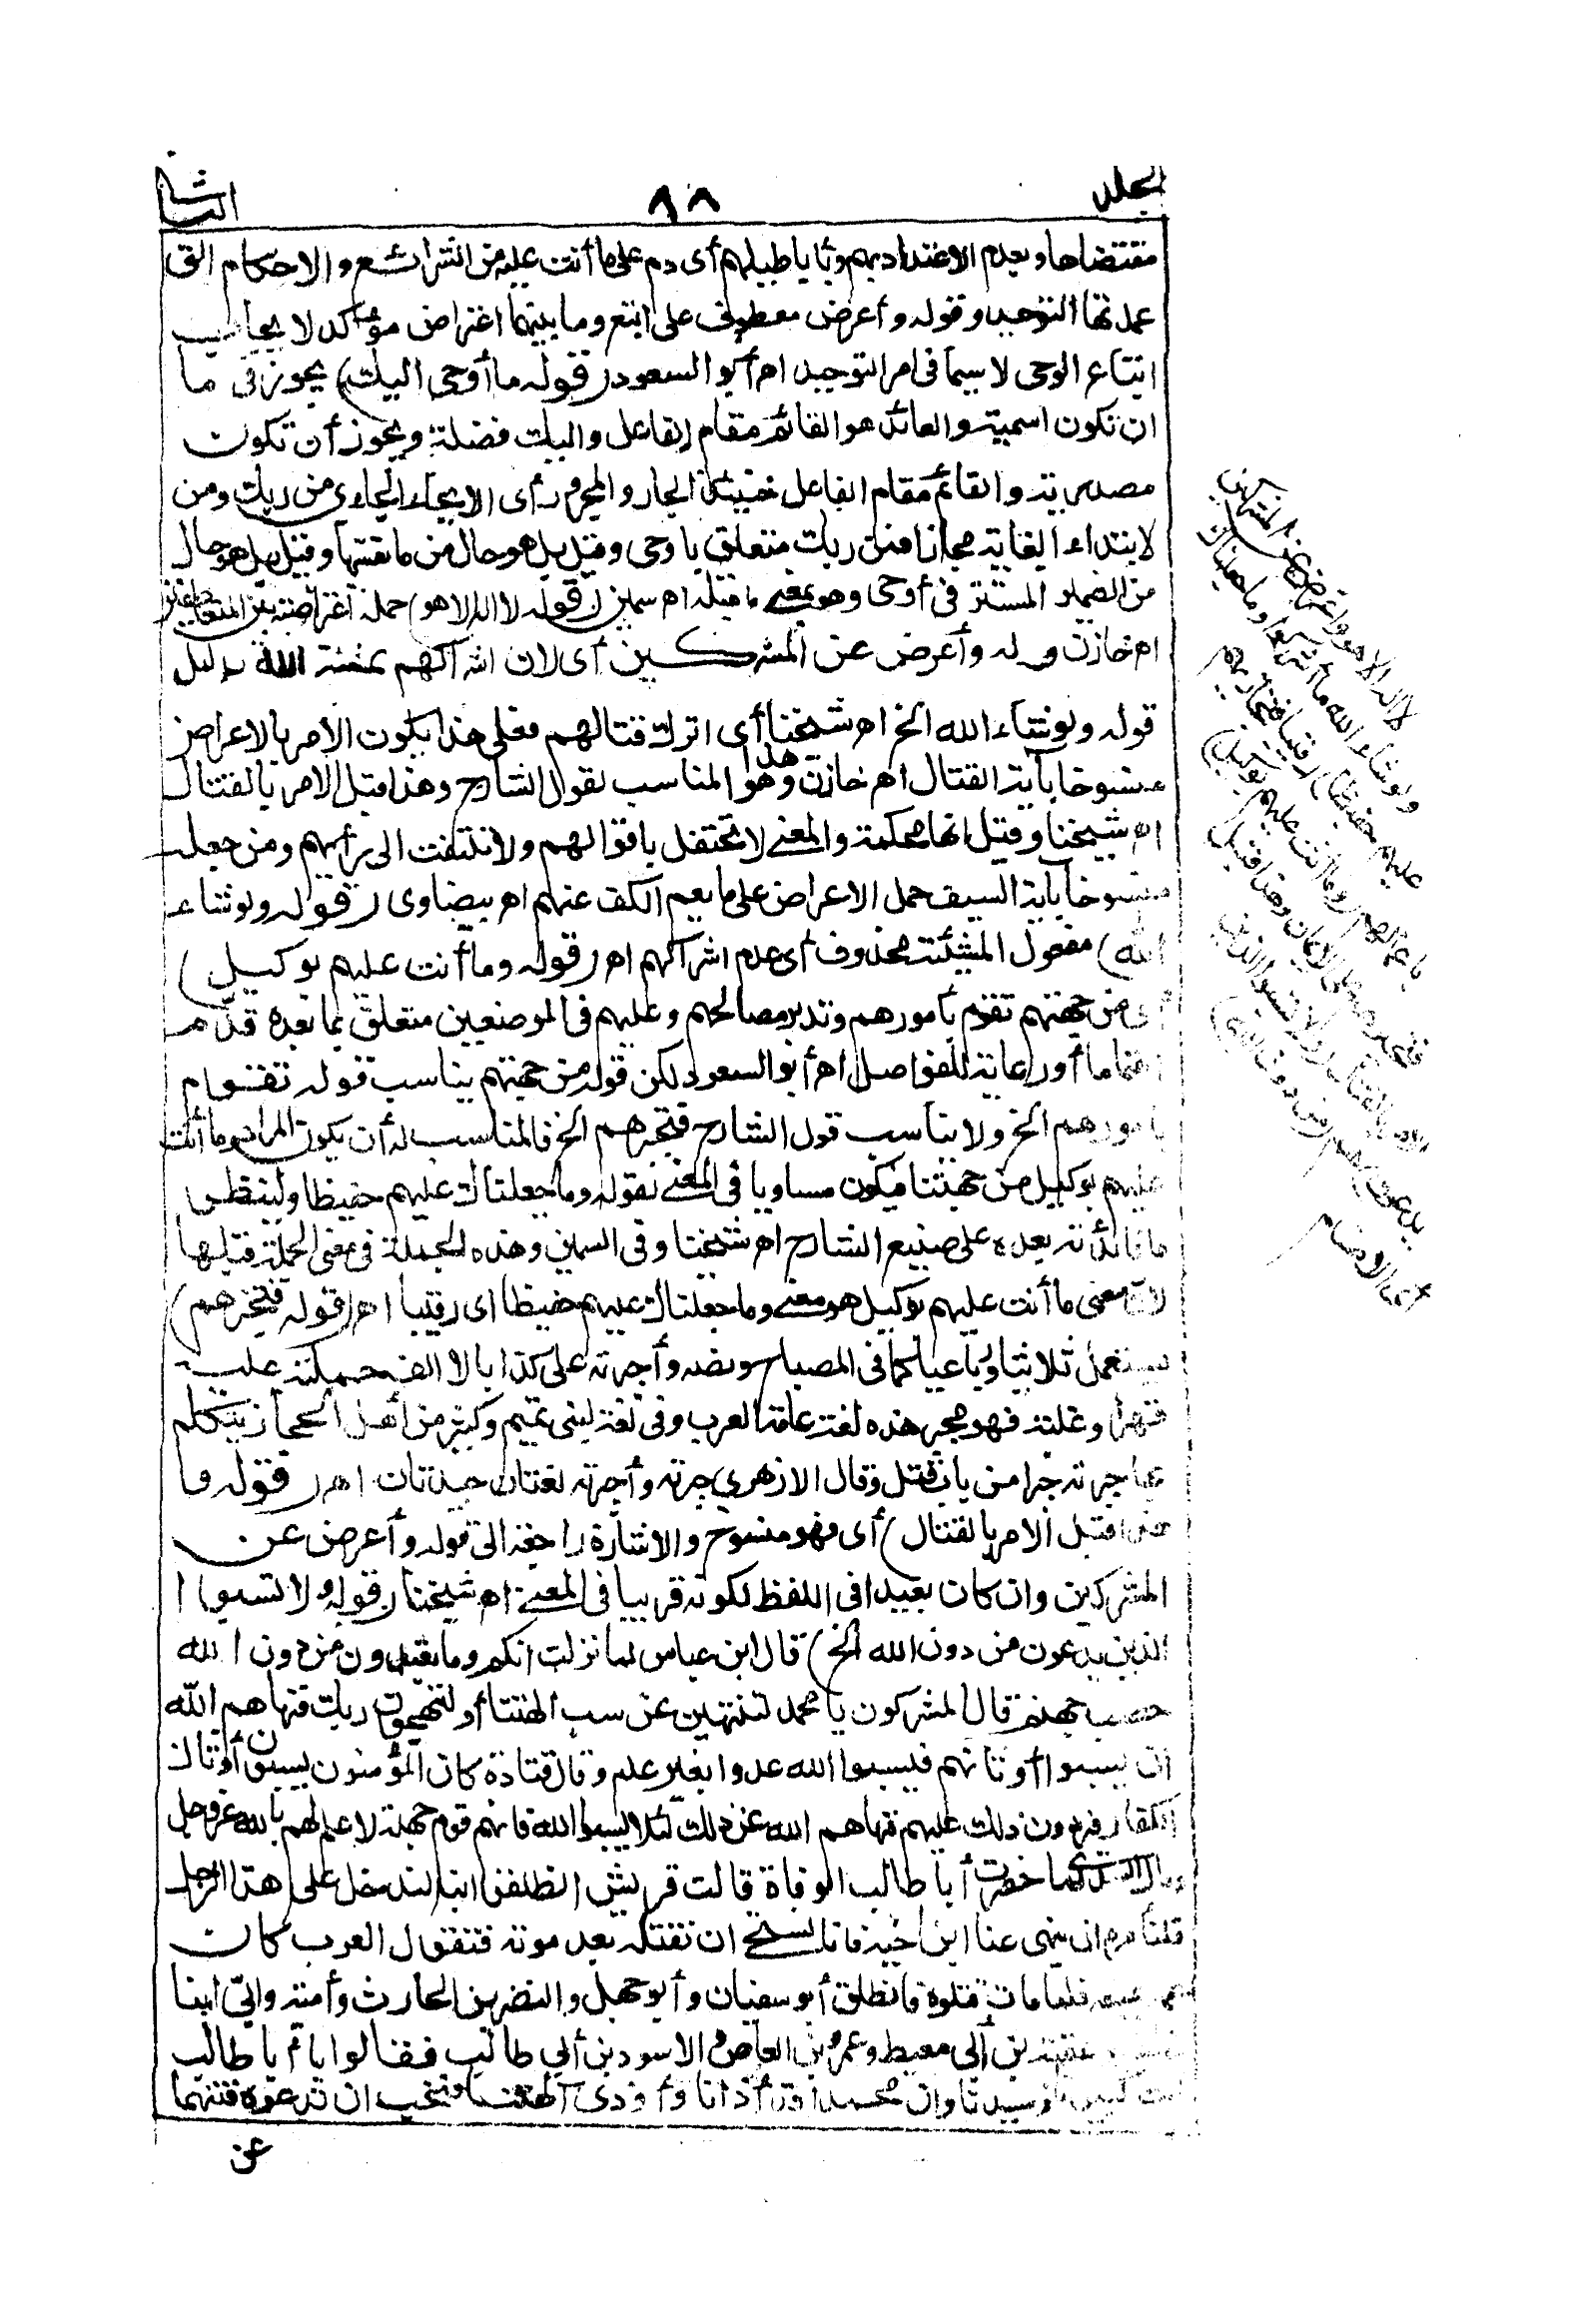 المجلد ٩٨ الثانى
مقتضاها وبعدم الاعتداد بهم وبأباطيلهم أى دم على ما أنت عليه من الشرائع والاحكام التى
عمدتها التوحيد وقوله وأعرض معطوف على اتبع وما بينهما اعتراض مؤكد لايجاب
اتباع الوحى لاسيما فى امر التوحيد اه أبو السعود (قوله ما أوحى اليك) يجوز فى ما
ان تكون اسمية والعائد هو القائم مقام الفاعل واليك فضلة ويجوز أن تكون
مصدرية والقائم مقام الفاعل حينئذ الجار والمجرور أى الايحاء الجاءى من ربك ومن
لابتداء الغاية مجازا فمن ربك متعلق باوحى وقيل بل هو حال من ما نفسها وقيل بل هو حال
من الضمير المستتر فى أوحى وهو بمعنى ما قبله اه سمين (قوله لا اله الا هو) جملة اعتراضية بين المتعاطفين
اه خازن قوله وأعرض عن المشركين أى لان اشراكهم بمشيئة الله بدليل
قوله ولو شاء الله الخ اه شيخنا أى اترك قتالهم فعلى هذا يكون الامر بالاعراض
منسوخا بآية القتال اه خازن وهذا هو المناسب لقول الشارح وهذا قبل الامر بالقتال
اه شيخنا وقيل انها محكمة والمعنى لا تحتفل باقوالهم ولا تلتفت الى رأيهم ومن جعله
منسوخا بآية السيف حمل الاعراض على ما يعم الكف عنهم اه بيضاوى (قوله ولو شاء
الله) مفعول المشيئة محذوف أى عدم اشراكهم اه (قوله وما أنت عليهم بوكيل)
أى من جهتهم تقوم بأمورهم وتدبر مصالحهم وعليهم فى الموضعين متعلق بما بعده قدم
اهتماما أو رعاية للفواصل اه أبو السعود لكن قوله من جهتهم يناسب قوله تقوم
بأمورهم الخ ولا يناسب قول الشارح فتجبرهم الخ فالمناسب له أن يكون المراد وما أنت
عليهم بوكيل من جهتنا فيكون مساويا فى المعنى لقوله وما جعلناك عليهم حفيظا ولينظر
ما فائدته بعده على صنيع الشارح اه شيخنا وفى السمين وهذه الجملة فى معنى الجملة قبلها
لان معنى ما أنت عليهم بوكيل هو معنى وما جعلناك عليهم حفيظا اى رقيبا اه (قوله فتجبرهم)
يستعمل ثلاثيا ورباعيا كما فى المصباح ونصه وأجبرته على كذا بالالف حملته عليه
قهرا وغلبة فهو مجبر هذه لغة عامة العرب وفى لغة لبنى تميم وكثير من أهل الحجاز يتكلم
بها جبرته جبرا من باب قتل وقال الازهرى جبرته وأجبرته لغتان جيدتان اه (قوله و
هذا قبل الامر بالقتال) أى فهو منسوخ والاشارة راجعة الى قوله وأعرض عن
المشركين وان كان بعيدا فى اللفظ لكونه قريبا فى المعنى اه شيخنا (قوله ولا تسبوا
الذين يدعون من دون الله الخ) قال ابن عباس لما نزلت انكم وما تعبدون من دون الله
حصب جهنم قال المشركون يا محمد لتنتهين عن سب الهتنا أو لنهجون ربك فنهاهم الله
أن يسبوا أوثانهم فيسبوا الله عدوا بغير علم وقال قتادة كان المؤمنون يسبون أوثان
الكفار فيردون ذلك عليهم فنهاهم الله عن ذلك لئلا يسبوا الله فانهم قوم جهلة لا علم لهم بالله عز وجل
وقال السدى لما حضرت أبا طالب الوفاة قالت قريش انطلقوا بنا لندخل على هذا الرجل
فلنأمره ان ينهى عنا ابن أخيه فانا نستحى ان نقتله بعد موته فتقول العرب كان
عمه يمنعه فلما مات قتلوه فانطلق أبو سفيان وأبو جهل والنضر بن الحارث وأمية وأبى ابنا
خلف وعقبة بن أبى معيط وعمرو بن العاص والاسود بن أبى طالب فقالوا يا أبا طالب
أنت كبيرنا وسيدنا وان محمدا قد أذانا وأوذى آلهتنا ونحب ان تدعوه فتنهاه
عن
لا اله الا هو وأعرض عن المشركين
ولو شاء الله ما أشركوا وما جعلناك
عليهم حفيظا) رقيبا فتجازيهم
باعمالهم (وما أنت عليهم بوكيل)
فتجبرهم على الايمان وهذا قبل
الامر بالقتال (ولا تسبوا الذين
يدعون)هم (من دون الله)
أى الاصنام